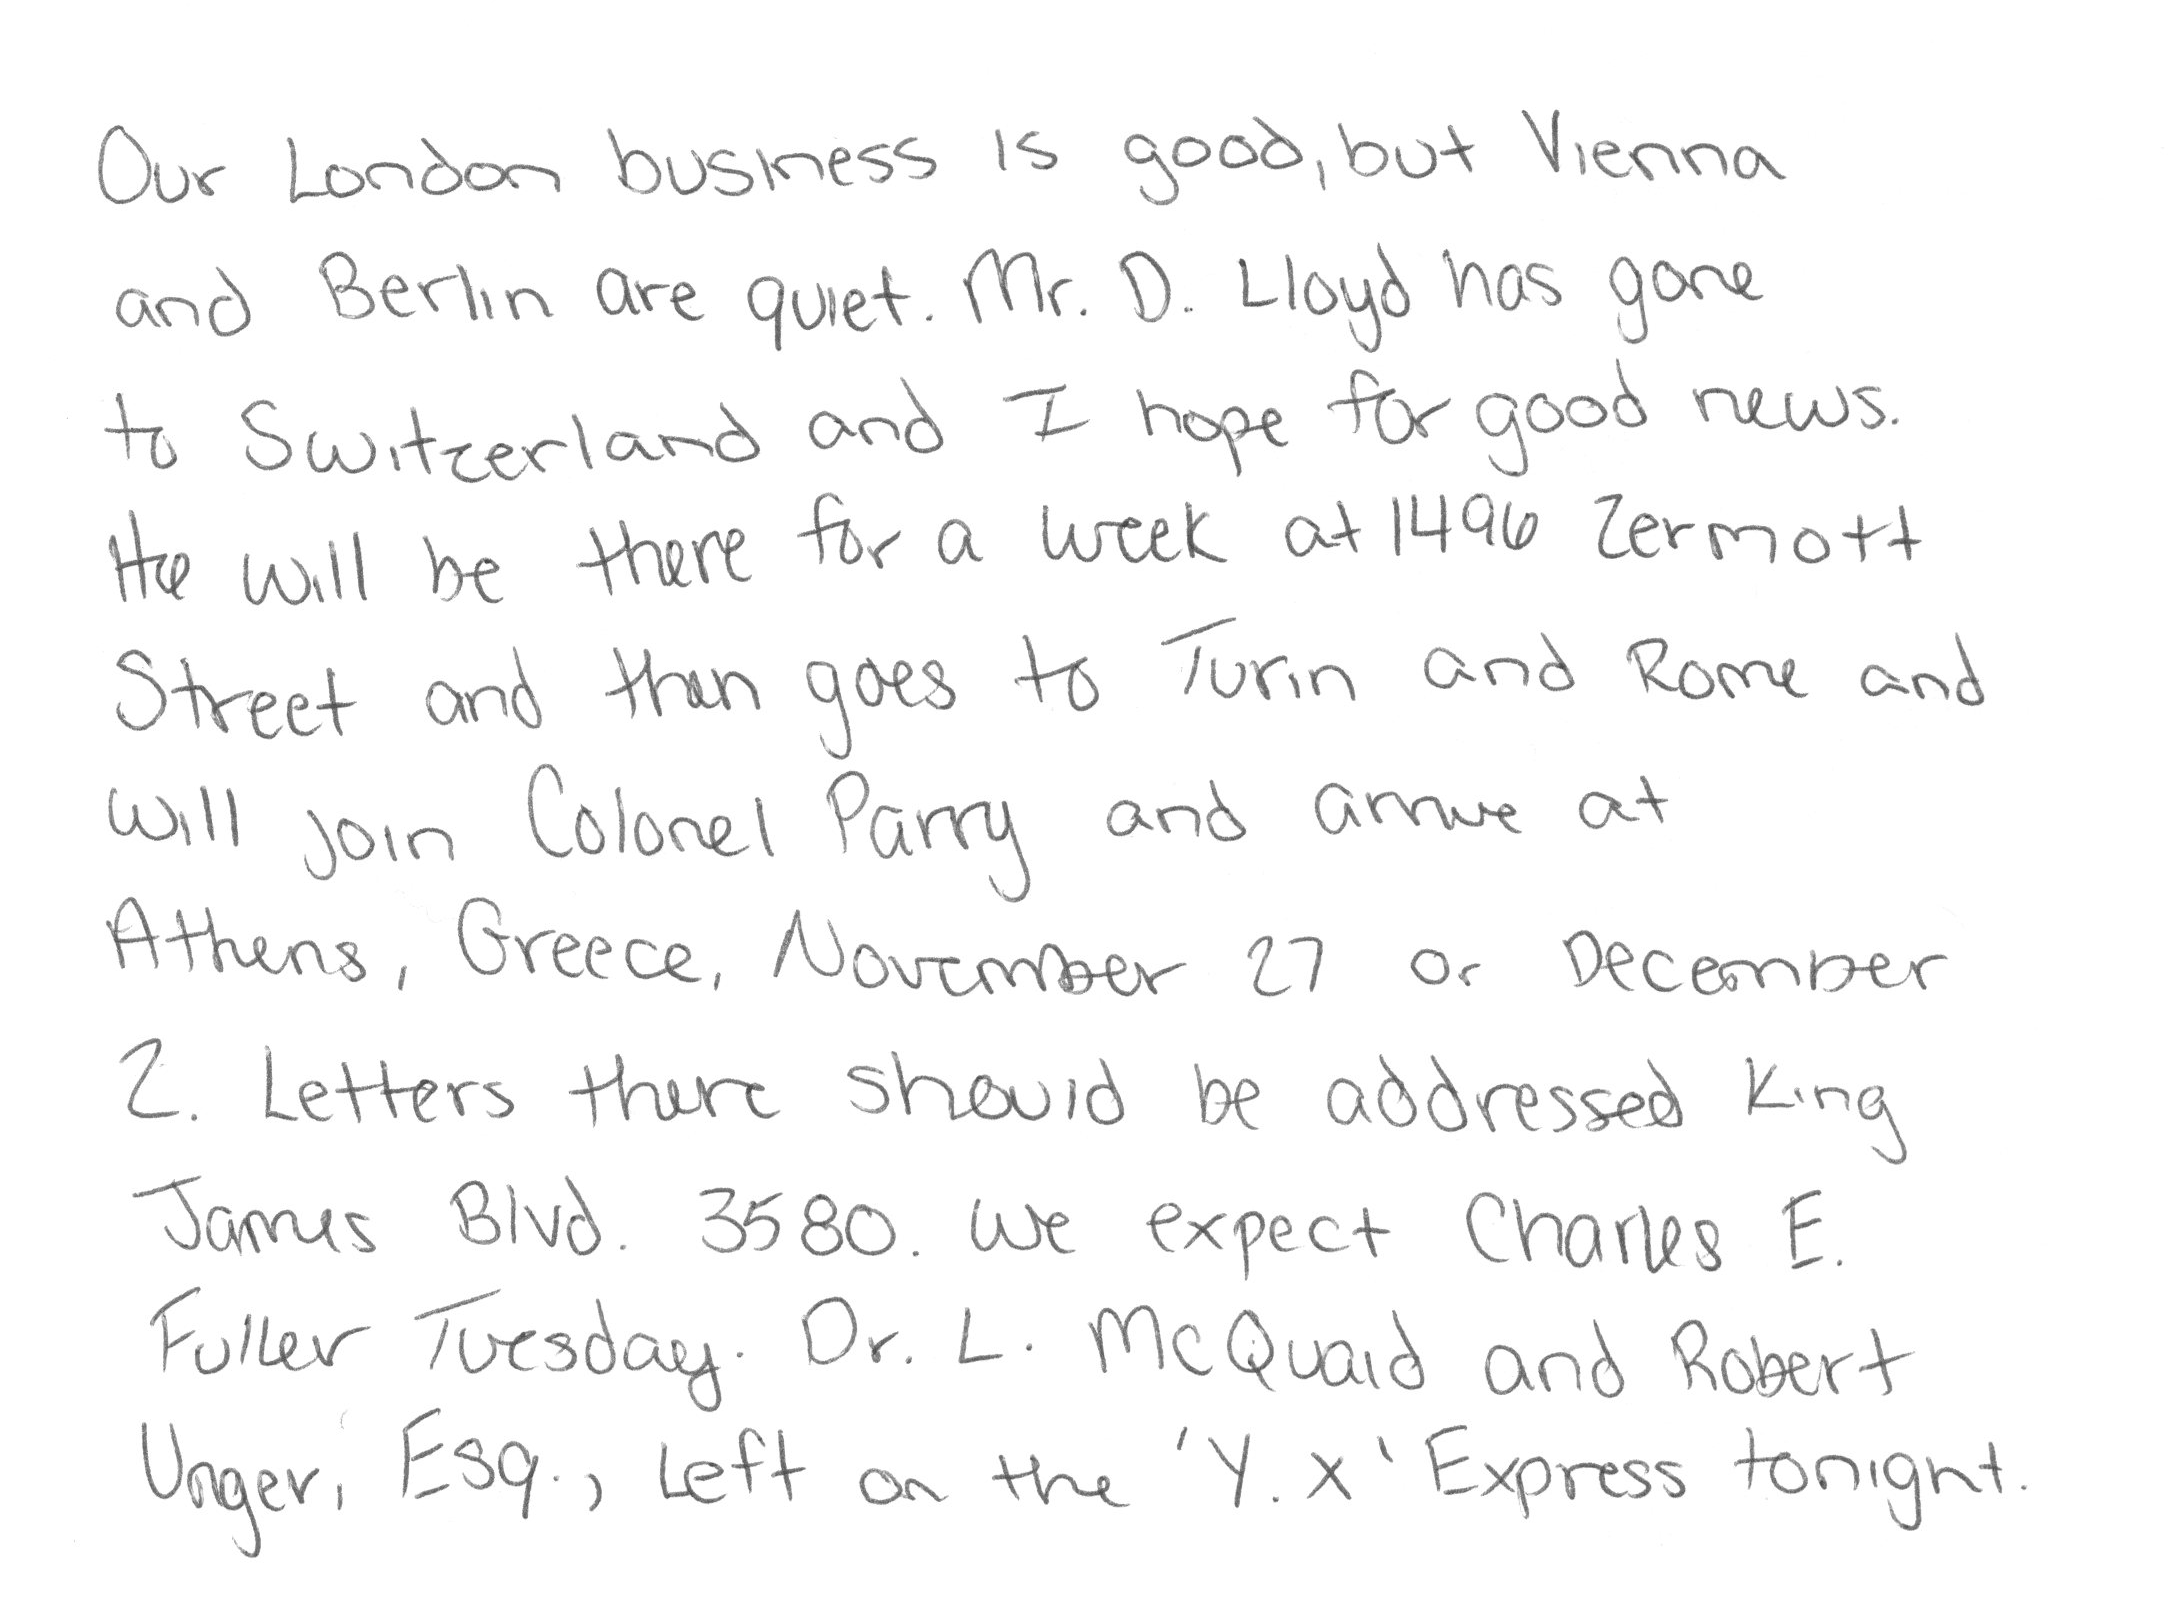 Our London business is good, but Vienna
and Berlin are quiet. Mr. D. Lloyd has gone
to Switzerland and I hope for good news.
He will be there for a week at 1496 Zermott
Street and then goes to Turin and Rome and
will join Colonel Parry and arrive at
Athens, Greece, November 27 or December
2. Letters there should be addressed King
James Blvd. 3580. We expect Charles E.
Fuller Tuesday. Dr. L. McQuaid and Robert
Unger, Esq., left on the 'Y. X' Express tonight.